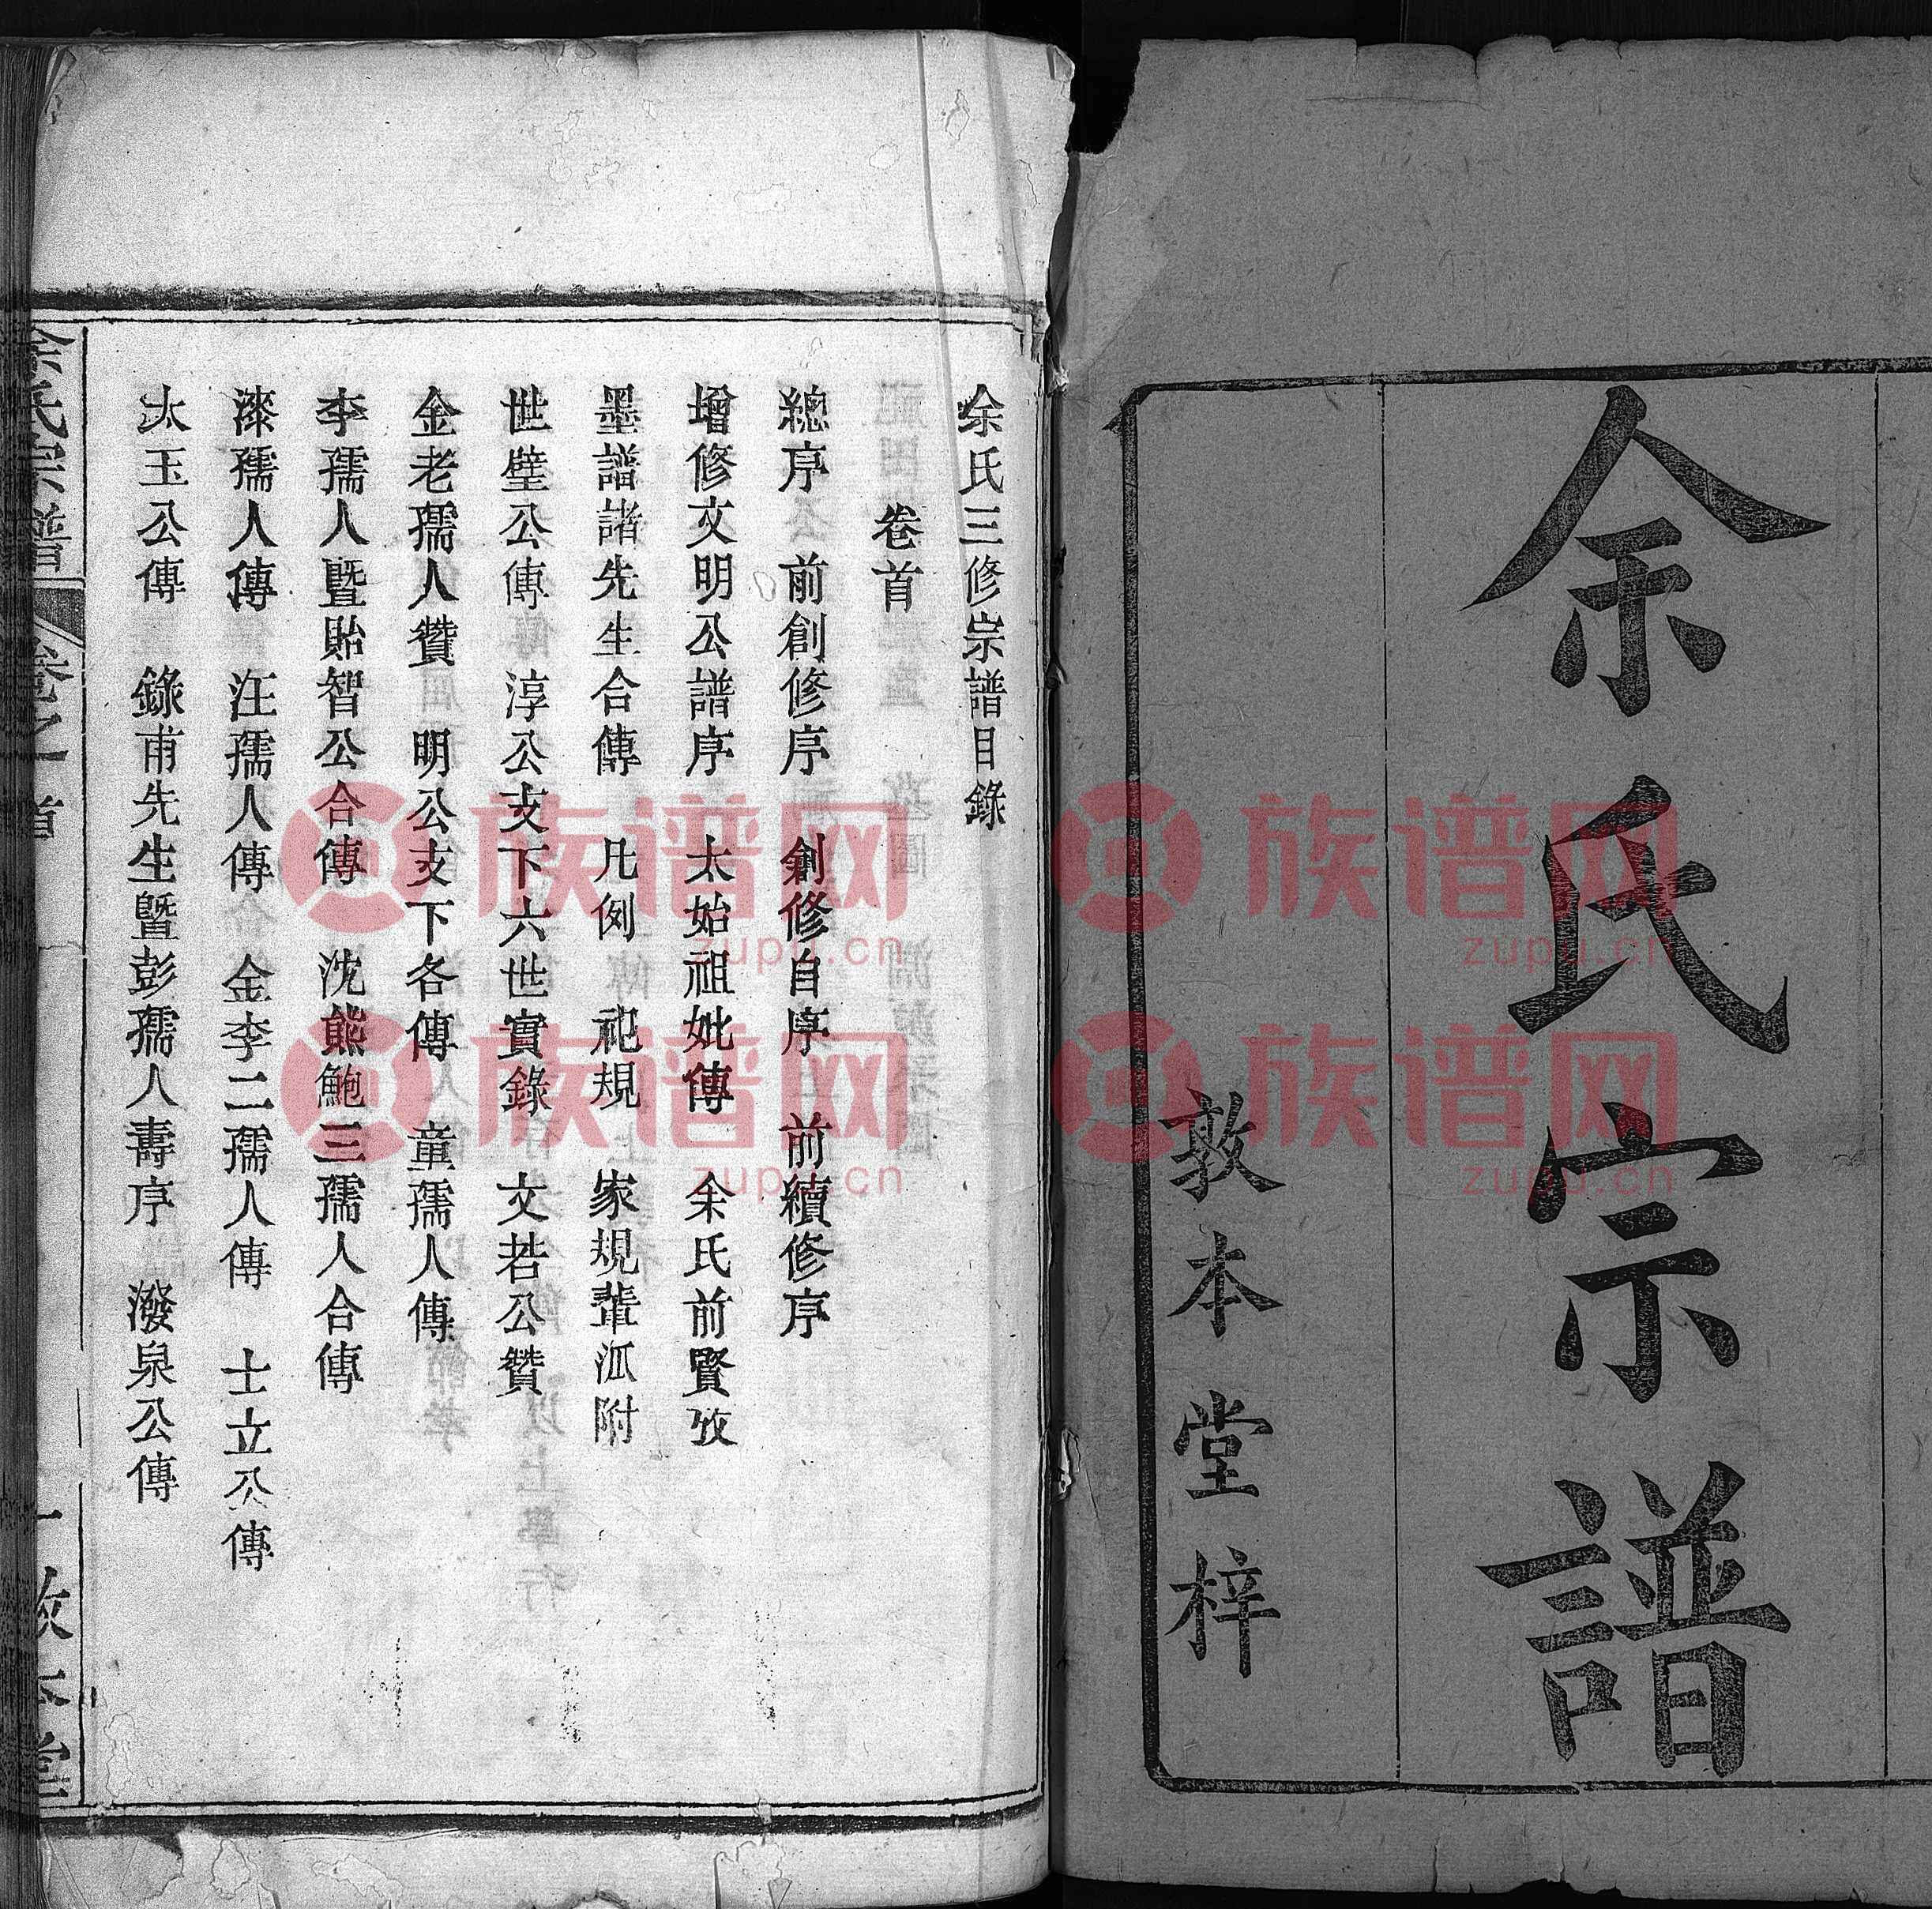 余氏宗譜
敦本堂梓
余氏三修宗譜目錄
卷首
總序 前創修序 創修自序 前續修序
增修文明公譜序 太始祖妣傳 余氏前賢攷
墨譜諸先生合傳 凡例 祀規 家規輩派附
世壁公傳 淳公支下六世實錄 文若公贊
金老孺人贊 明公支下各傳 童孺人傳
李孺人暨貽智公合傳 沈熊鮑三孺人合傳
漆孺人傳 汪孺人傳 金李二孺人傳 士立公傳
太玉公傳 錄甫先生暨彭孺人壽序 潑泉公傳
余氏宗譜 卷之首 一 敦本堂
族谱网
zupu.cn
族谱网
zupu.cn
族谱网
zupu.cn
族谱网
zupu.cn